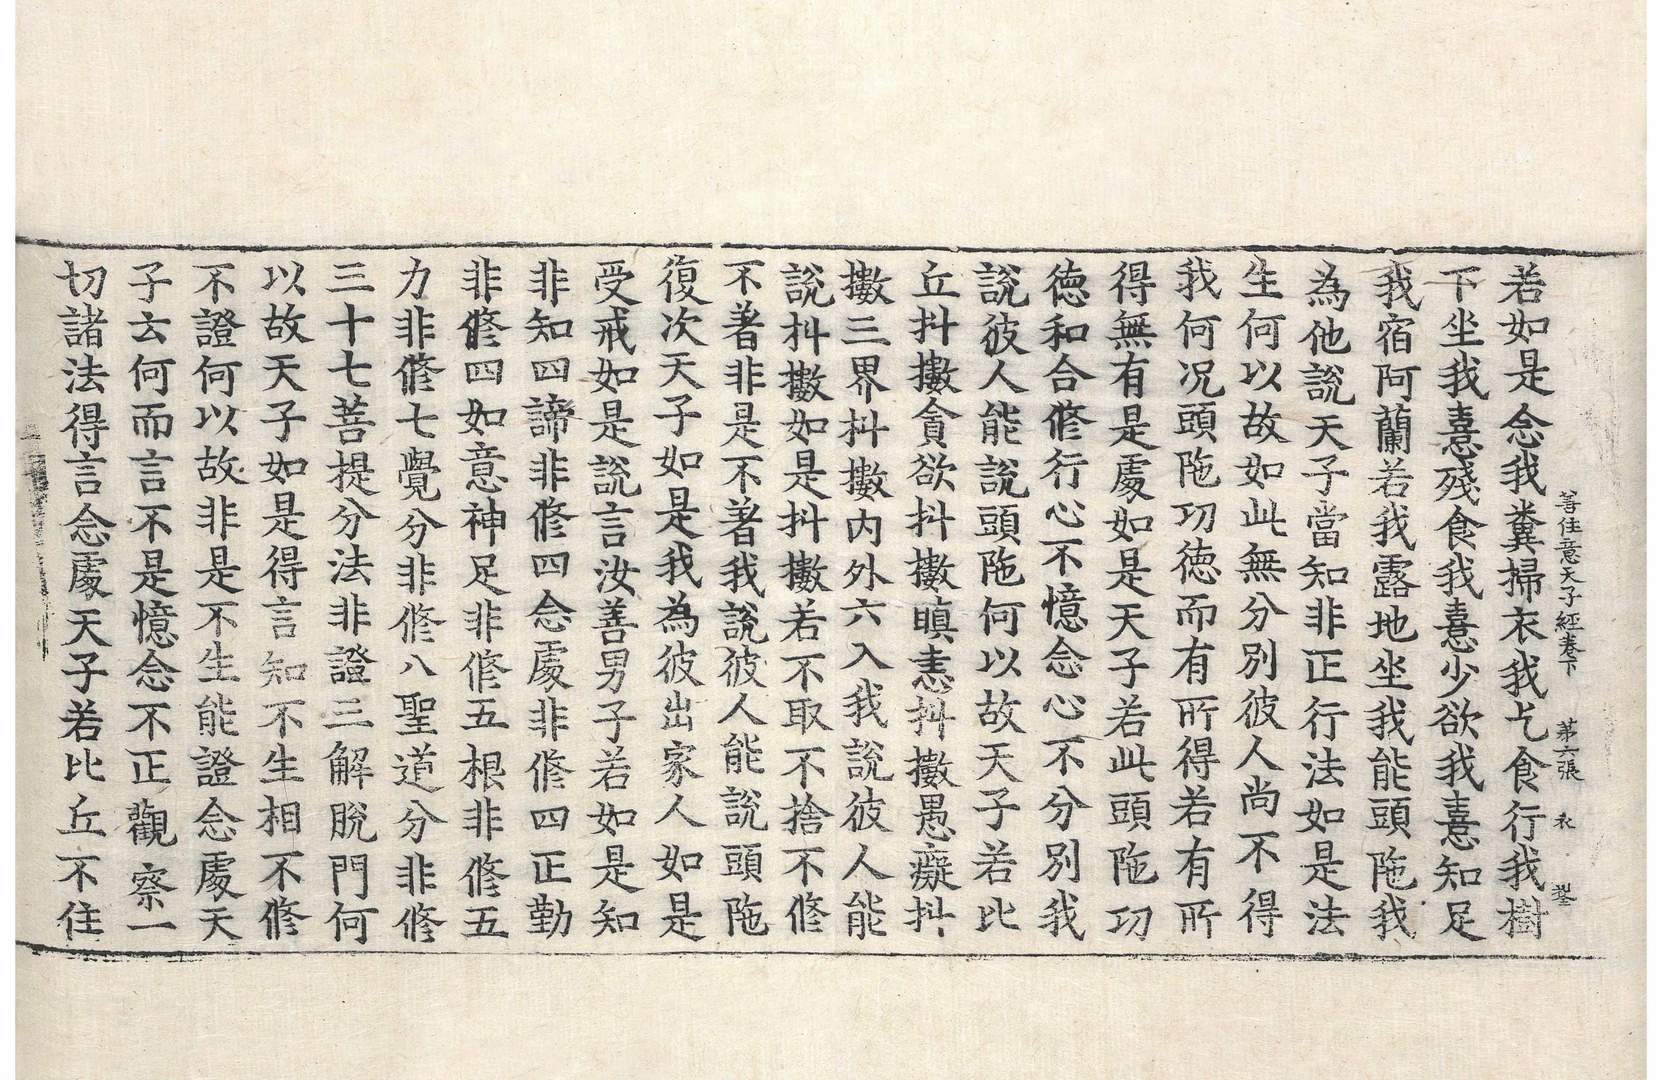 善住意天子經卷下　第六張　衣
若如是念我糞掃衣我乞食行我樹
下坐我憙殘食我憙少欲我憙知足
我宿阿蘭若我露地坐我能頭陁我
為他說天子當知非正行法如是法
生何以故如此無分別彼人尚不得
我何况頭陁功德而有所得若有所
得無有是處如是天子若此頭陁功
德和合修行心不憶念心不分別我
說彼人能說頭陁何以故天子若比
丘抖擻貪欲抖擻瞋恚抖擻愚癡抖
擻三界抖擻內外六入我說彼人能
說抖擻如是抖擻若不取不捨不修
不著非是不著我說彼人能說頭陁
復次天子如是我為彼出家人如是
受戒如是說言汝善男子若如是知
非知四諦非修四念處非修四正勤
非修四如意神足非修五根非修五
力非修七覺分非修八聖道分非修
三十七菩提分法非證三解脫門何
以故天子如是得言知不生相不修
不證何以故非是不生能證念處天
子云何而言不是憶念不正觀察一
切諸法得言念處天子若比丘不住